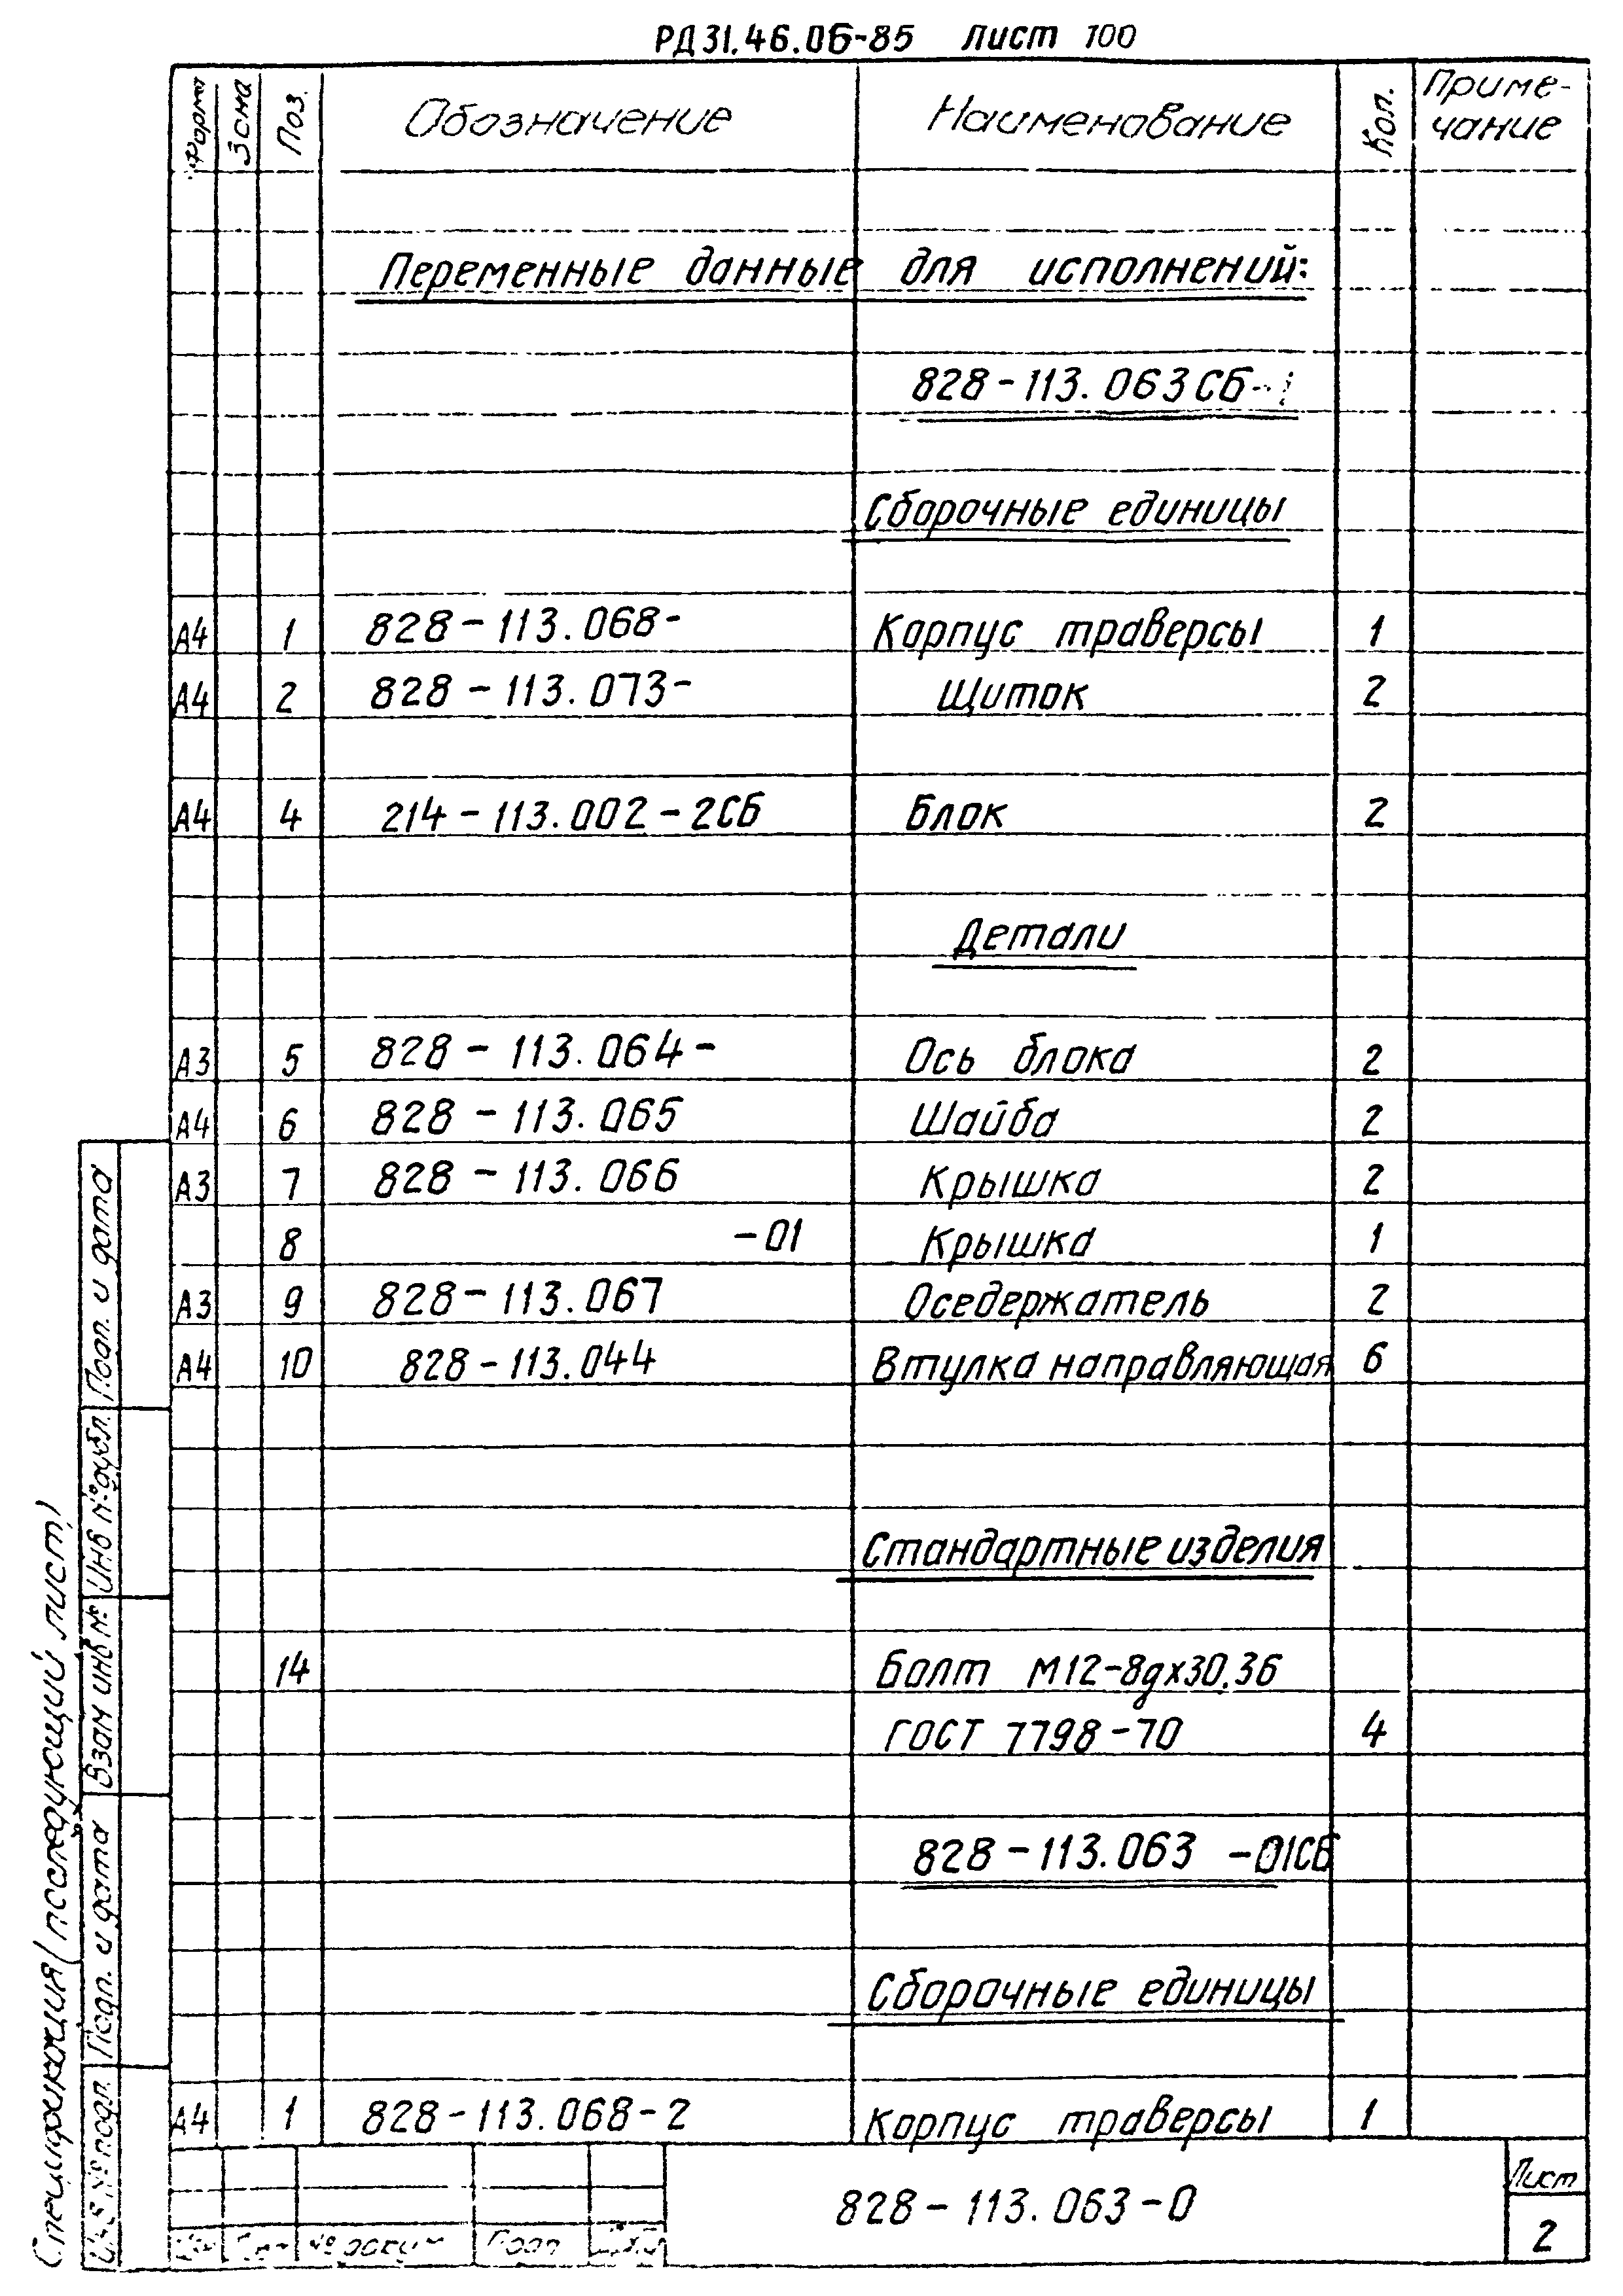 РД 31.46.06-85 Лист 100
Формат Зона Поз. Обозначение Наименование Кол. Приме-
чание
Переменные данные для исполнений:
828-113.063 СБ
Сборочные единицы
А4 1 828-113.068- Корпус траверсы 1
А4 2 828-113.073- Щиток 2
А4 4 214-113.002-2СБ Блок 2
Детали
А3 5 828-113.064- Ось блока 2
А4 6 828-113.065 Шайба 2
А3 7 828-113.066 Крышка 2
8 -01 Крышка 1
А3 9 828-113.067 Оседержатель 2
А4 10 828-113.044 Втулка направляющая 6
Стандартные изделия
14 Болт М12-8gх30.36
ГОСТ 7798-70 4
828-113.063 -01СБ
Сборочные единицы
А4 1 828-113.068-2 Корпус траверсы 1
828-113.063-0
Лист
2
№ докум Подп
Спецификация (последующий лист)
Подп. и дата
Инв № дубл.
Взам инв №
Подп. и дата
Инв № подл.